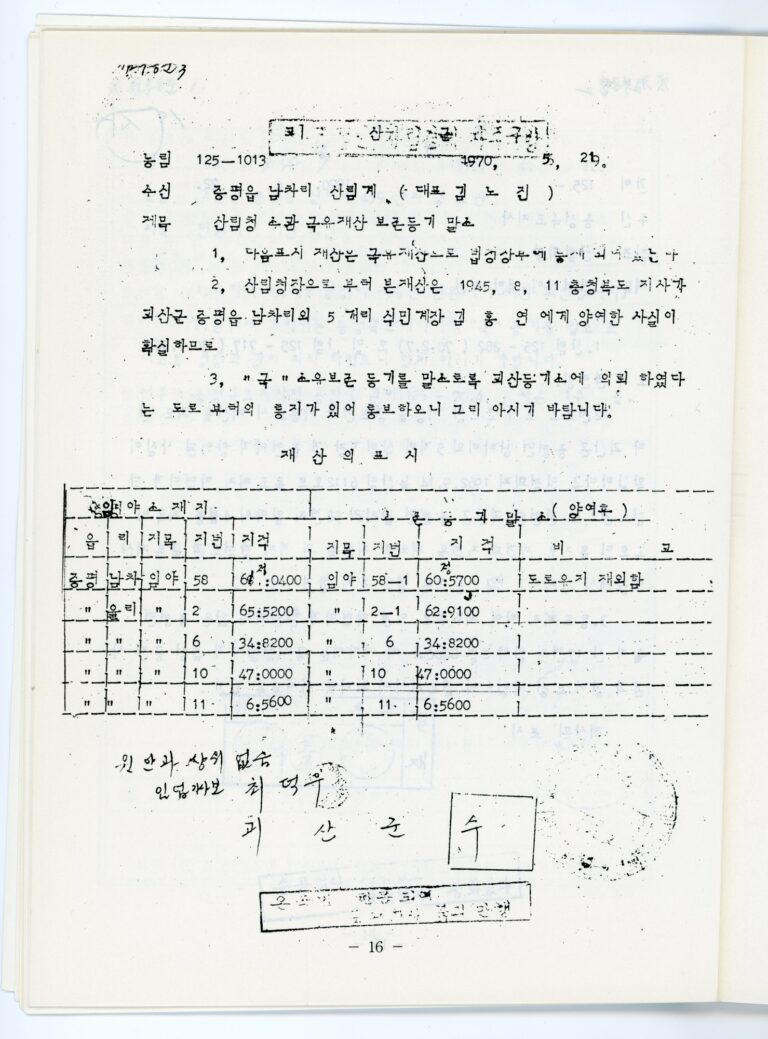 농림 125—1013 1970, 5, 21.
수신 증평읍 남차리 산림계 ( 대표 김 노 진 )
제목 산림청 소관 국유재산 보존등기 말소
1, 다음표시 재산은 국유재산으로
2, 산림청장으로 부터 본재산은 1945, 8, 11 충청북도 지사가
괴산군 증평읍 남차리외 5 개리 식민계장 김 홍 연 에게 양여한 사실이
확실하므로
3, "국" 소유보존 등기를 말소토록 괴산등기소에 의뢰 하였다
는 도로 부터의 통지가 있어 통보하오니 그리 아시기 바랍니다.
재 산 의 표 시
임야소재지 보존등기말소 ( 양여후 )
읍 리 지목 지번 지적 지목 지번 지적 비 고
증평 남차 임야 58 .0400 임야 58—1 60:5700 도로유지 제외함
" 율리 " 2 65:5200 " 2—1 62:9100
" " " 6 34:8200 " 6 34:8200
" " " 10 47:0000 " 10 47:0000
" " " 11 6:5600 " 11 6:5600
원안과 상위 없음
최덕우
괴 산 군 수
— 16 —